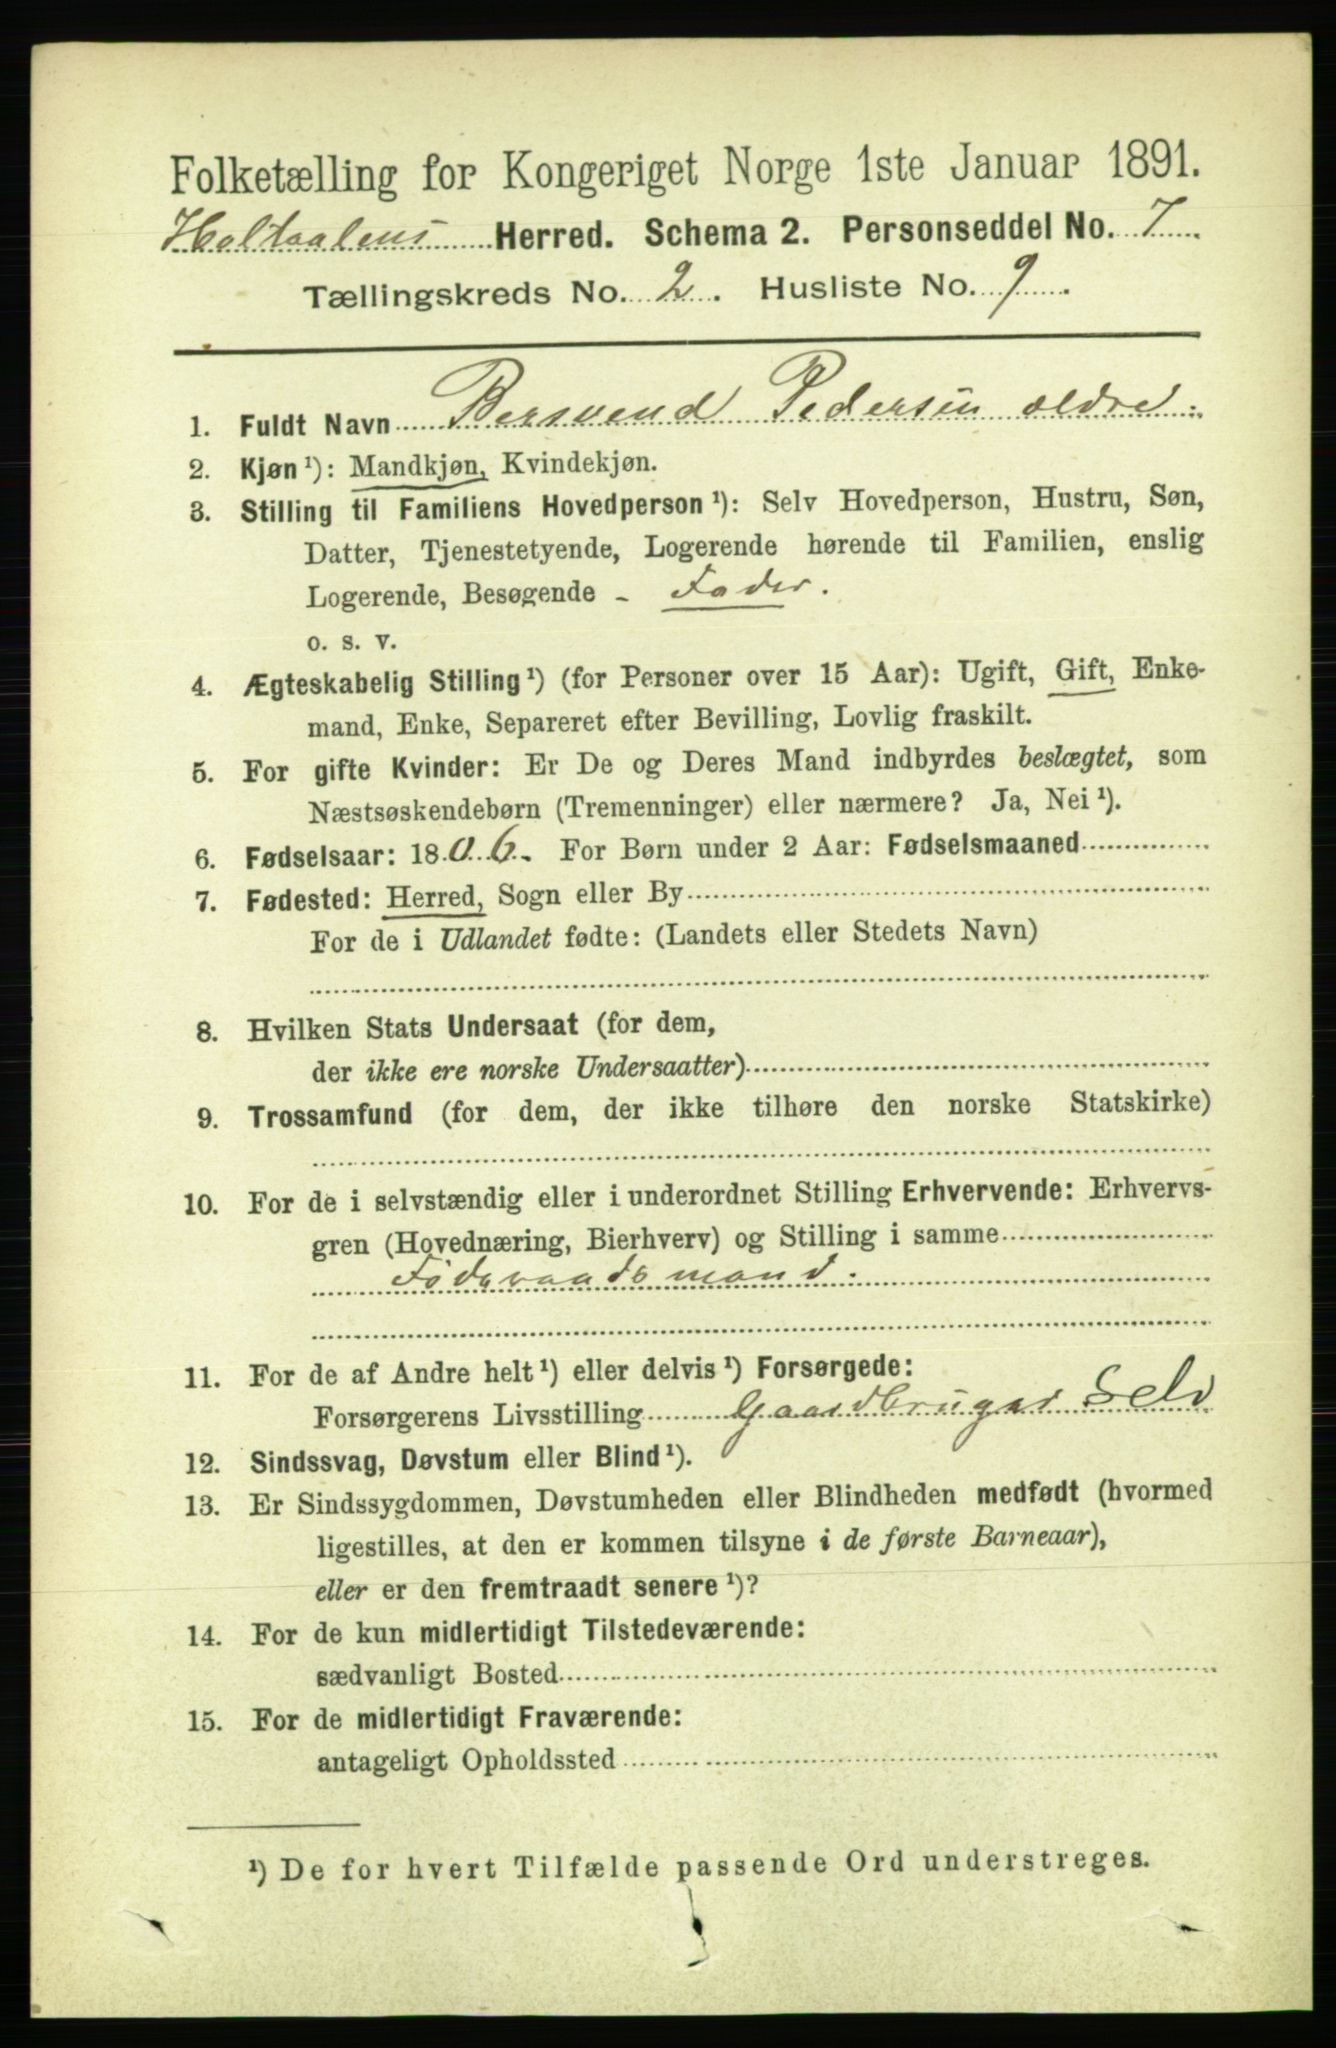 Folketælling for Kongeriget Norge 1ste Januar 1891.
Holtaalens Herred. Schema 2. Personseddel No. 7
Tællingskreds No. 2. Husliste No. 9.
1. Fuldt Navn Bersvend Pedersen ældre.
2. Kjøn ¹): Mandkjøn, Kvindekjøn.
3. Stilling til Familiens Hovedperson ¹): Selv Hovedperson, Hustru, Søn,
Datter, Tjenestetyende, Logerende hørende til Familien, enslig
Logerende, Besøgende - Fader.
o. s. v.
4. Ægteskabelig Stilling ¹) (for Personer over 15 Aar): Ugift, Gift, Enke-
mand, Enke, Separeret efter Bevilling, Lovlig fraskilt.
5. For gifte Kvinder: Er De og Deres Mand indbyrdes beslægtet, som
Næstsøskendebørn (Tremenninger) eller nærmere? Ja, Nei ¹).
6. Fødselsaar: 1806. For Børn under 2 Aar: Fødselsmaaned
7. Fødested: Herred, Sogn eller By
For de i Udlandet fødte: (Landets eller Stedets Navn)
8. Hvilken Stats Undersaat (for dem,
der ikke ere norske Undersaatter)
9. Trossamfund (for dem, der ikke tilhøre den norske Statskirke)
10. For de i selvstændig eller i underordnet Stilling Erhvervende: Erhvervs-
gren (Hovednæring, Bierhverv) og Stilling i samme
Föderaadsmand.
11. For de af Andre helt ¹) eller delvis ¹) Forsørgede:
Forsørgerens Livsstilling Gaardbruger Selv
12. Sindssvag, Døvstum eller Blind ¹).
13. Er Sindssygdommen, Døvstumheden eller Blindheden medfødt (hvormed
ligestilles, at den er kommen tilsyne i de første Barneaar),
eller er den fremtraadt senere ¹)?
14. For de kun midlertidigt Tilstedeværende:
sædvanligt Bosted
15. For de midlertidigt Fraværende:
antageligt Opholdssted
¹) De for hvert Tilfælde passende Ord understreges.